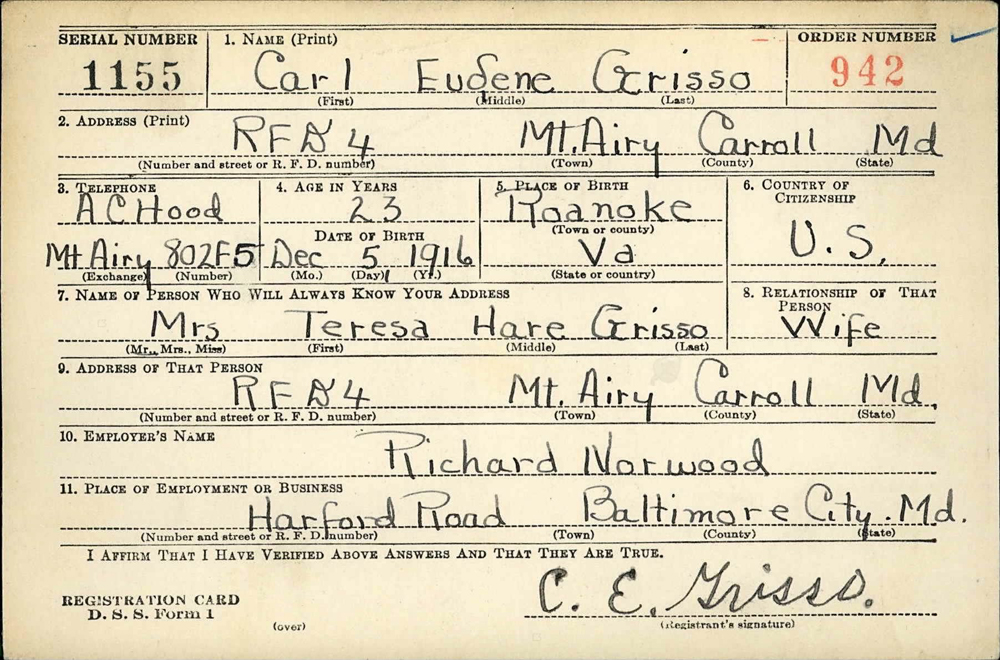 SERIAL NUMBER 1. NAME (Print) ORDER NUMBER
1155 Carl Eugene Grisso 942
(First) (Middle) (Last)
2. ADDRESS (Print)
RFD 4 Mt. Airy Carroll Md
(Number and street or R. F. D. number) (Town) (County) (State)
3. TELEPHONE 4. AGE IN YEARS 5. PLACE OF BIRTH 6. COUNTRY OF CITIZENSHIP
A C Hood 23 Roanoke
DATE OF BIRTH (Town or county) U.S.
Mt Airy 802F5 Dec 5 1916 Va
(Exchange) (Number) (Mo.) (Day) (Yr.) (State or country)
7. NAME OF PERSON WHO WILL ALWAYS KNOW YOUR ADDRESS 8. RELATIONSHIP OF THAT PERSON
Mrs Teresa Hare Grisso Wife
(Mr., Mrs., Miss) (First) (Middle) (Last)
9. ADDRESS OF THAT PERSON
RFD 4 Mt. Airy Carroll Md.
(Number and street or R. F. D. number) (Town) (County) (State)
10. EMPLOYER'S NAME
Richard Norwood
11. PLACE OF EMPLOYMENT OR BUSINESS
Harford Road Baltimore City. Md.
(Number and street or R. F. D. number) (Town) (County) (State)
I AFFIRM THAT I HAVE VERIFIED ABOVE ANSWERS AND THAT THEY ARE TRUE.
C. E. Grisso.
REGISTRATION CARD
D. S. S. Form 1
(over) (Registrant's signature)